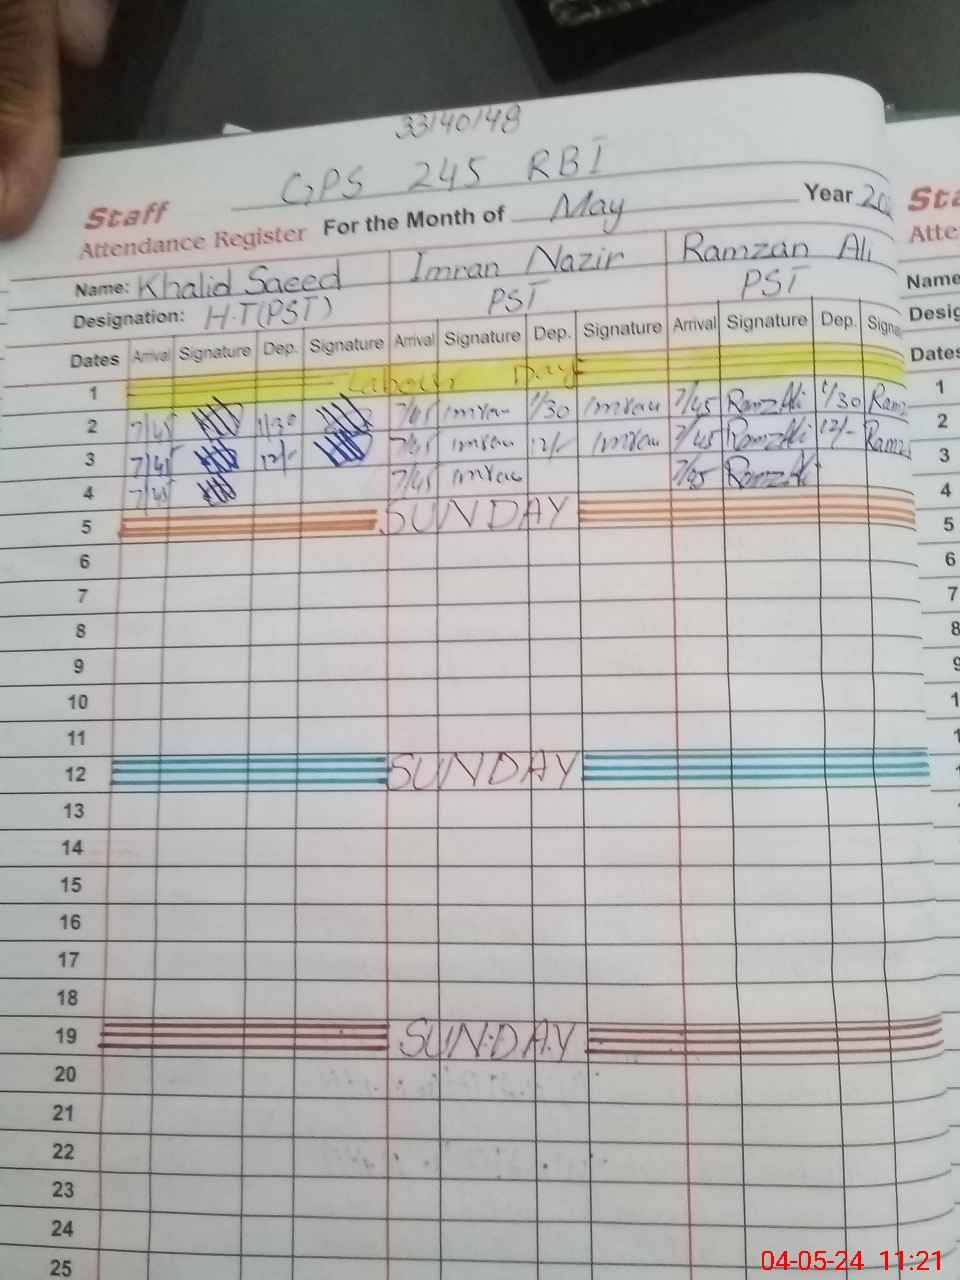 33140148
GPS 245 RBI
Staff
Attendance Register For the Month of May Year 20
Name: Khalid Saeed Imran Nazir Ramzan Ali
Designation: H.T(PST) PST PST
Dates Arrival Signature Dep. Signature Arrival Signature Dep. Signature Arrival Signature Dep. Signa
1 Labour Day
2 7/45 1/30 7/45 imran 1/30 imran 7/45 RamzAli 1/30 Ramz
3 7/45 12/- 7/45 imran 12/- imran 7/45 RamzAli 12/- Ramz
4 7/45 7/45 imran 7/45 RamzAli
5 SUNDAY
6
7
8
9
10
11
12 SUNDAY
13
14
15
16
17
18
19 SUNDAY
20
21
22
23
24
25
Sta
Atte
Name
Desig
Dates
1
2
3
4
5
6
7
8
04-05-24 11:21